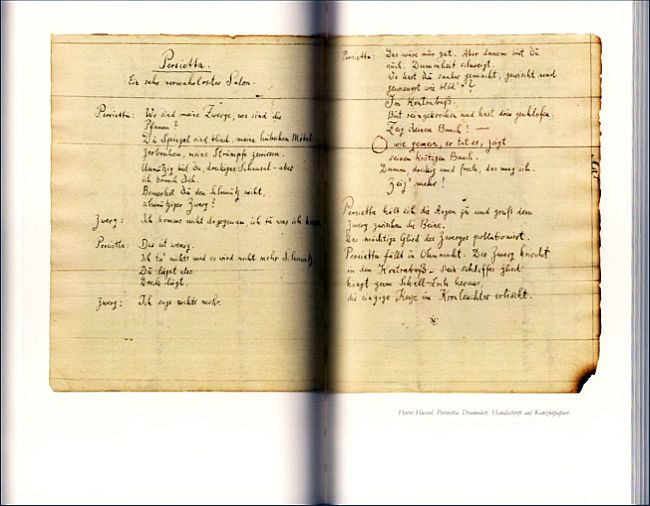 Persietta.
Ein sehr verwahrloster Salon.
Persietta: Wo sind meine Zwerge, wo sind die
Pfannen?
Du Spiegel sind blind, meine hübschen Möbel
zerbrochen, meine Strümpfe zerrissen.
Unnützig bist du, dreckiges Scheusal – aber
ich brauch dich.
Bemerkst Du den Schmutz nicht,
schmutziger Zwerg?
Zwerg: Ich komme nicht dagegen an, ich tu was ich kann.
Persietta: Das ist wenig.
Ich tu' nichts und es wird nicht mehr Schmutz.
Du lügst also.
Dreck lügt.
Zwerg: Ich sage nichts mehr.
Persietta: Das wäre nur gut. Aber darum bist Du
auch. Dummheit schweigt.
Wo hast Du sauber gemacht, gewischt und
Im Kontrabaß.
Bist reingekrochen und hast drin geschlafen.
Zeig deinen Bauch! —
O wie gemein, er tut es, zeigt
seinen Bauch.
Dumm, dreckig und frech, das mag ich.
Zeig' mehr!
Persietta hält sich die Augen zu und greift dem
Zwerg zwischen die Beine.
Das mächtige Glied des Zwerges pollutioniert.
Persietta fällt in Ohnmacht. Der Zwerg kriecht
in den Kontrabaß – sein schlaffes Glied
hängt zum Schall-Loch heraus,
die einzige Kerze im Kronleuchter erlischt.
Horst Hussel, Persietta, Dramolett. Handschrift auf Kanzleipapier